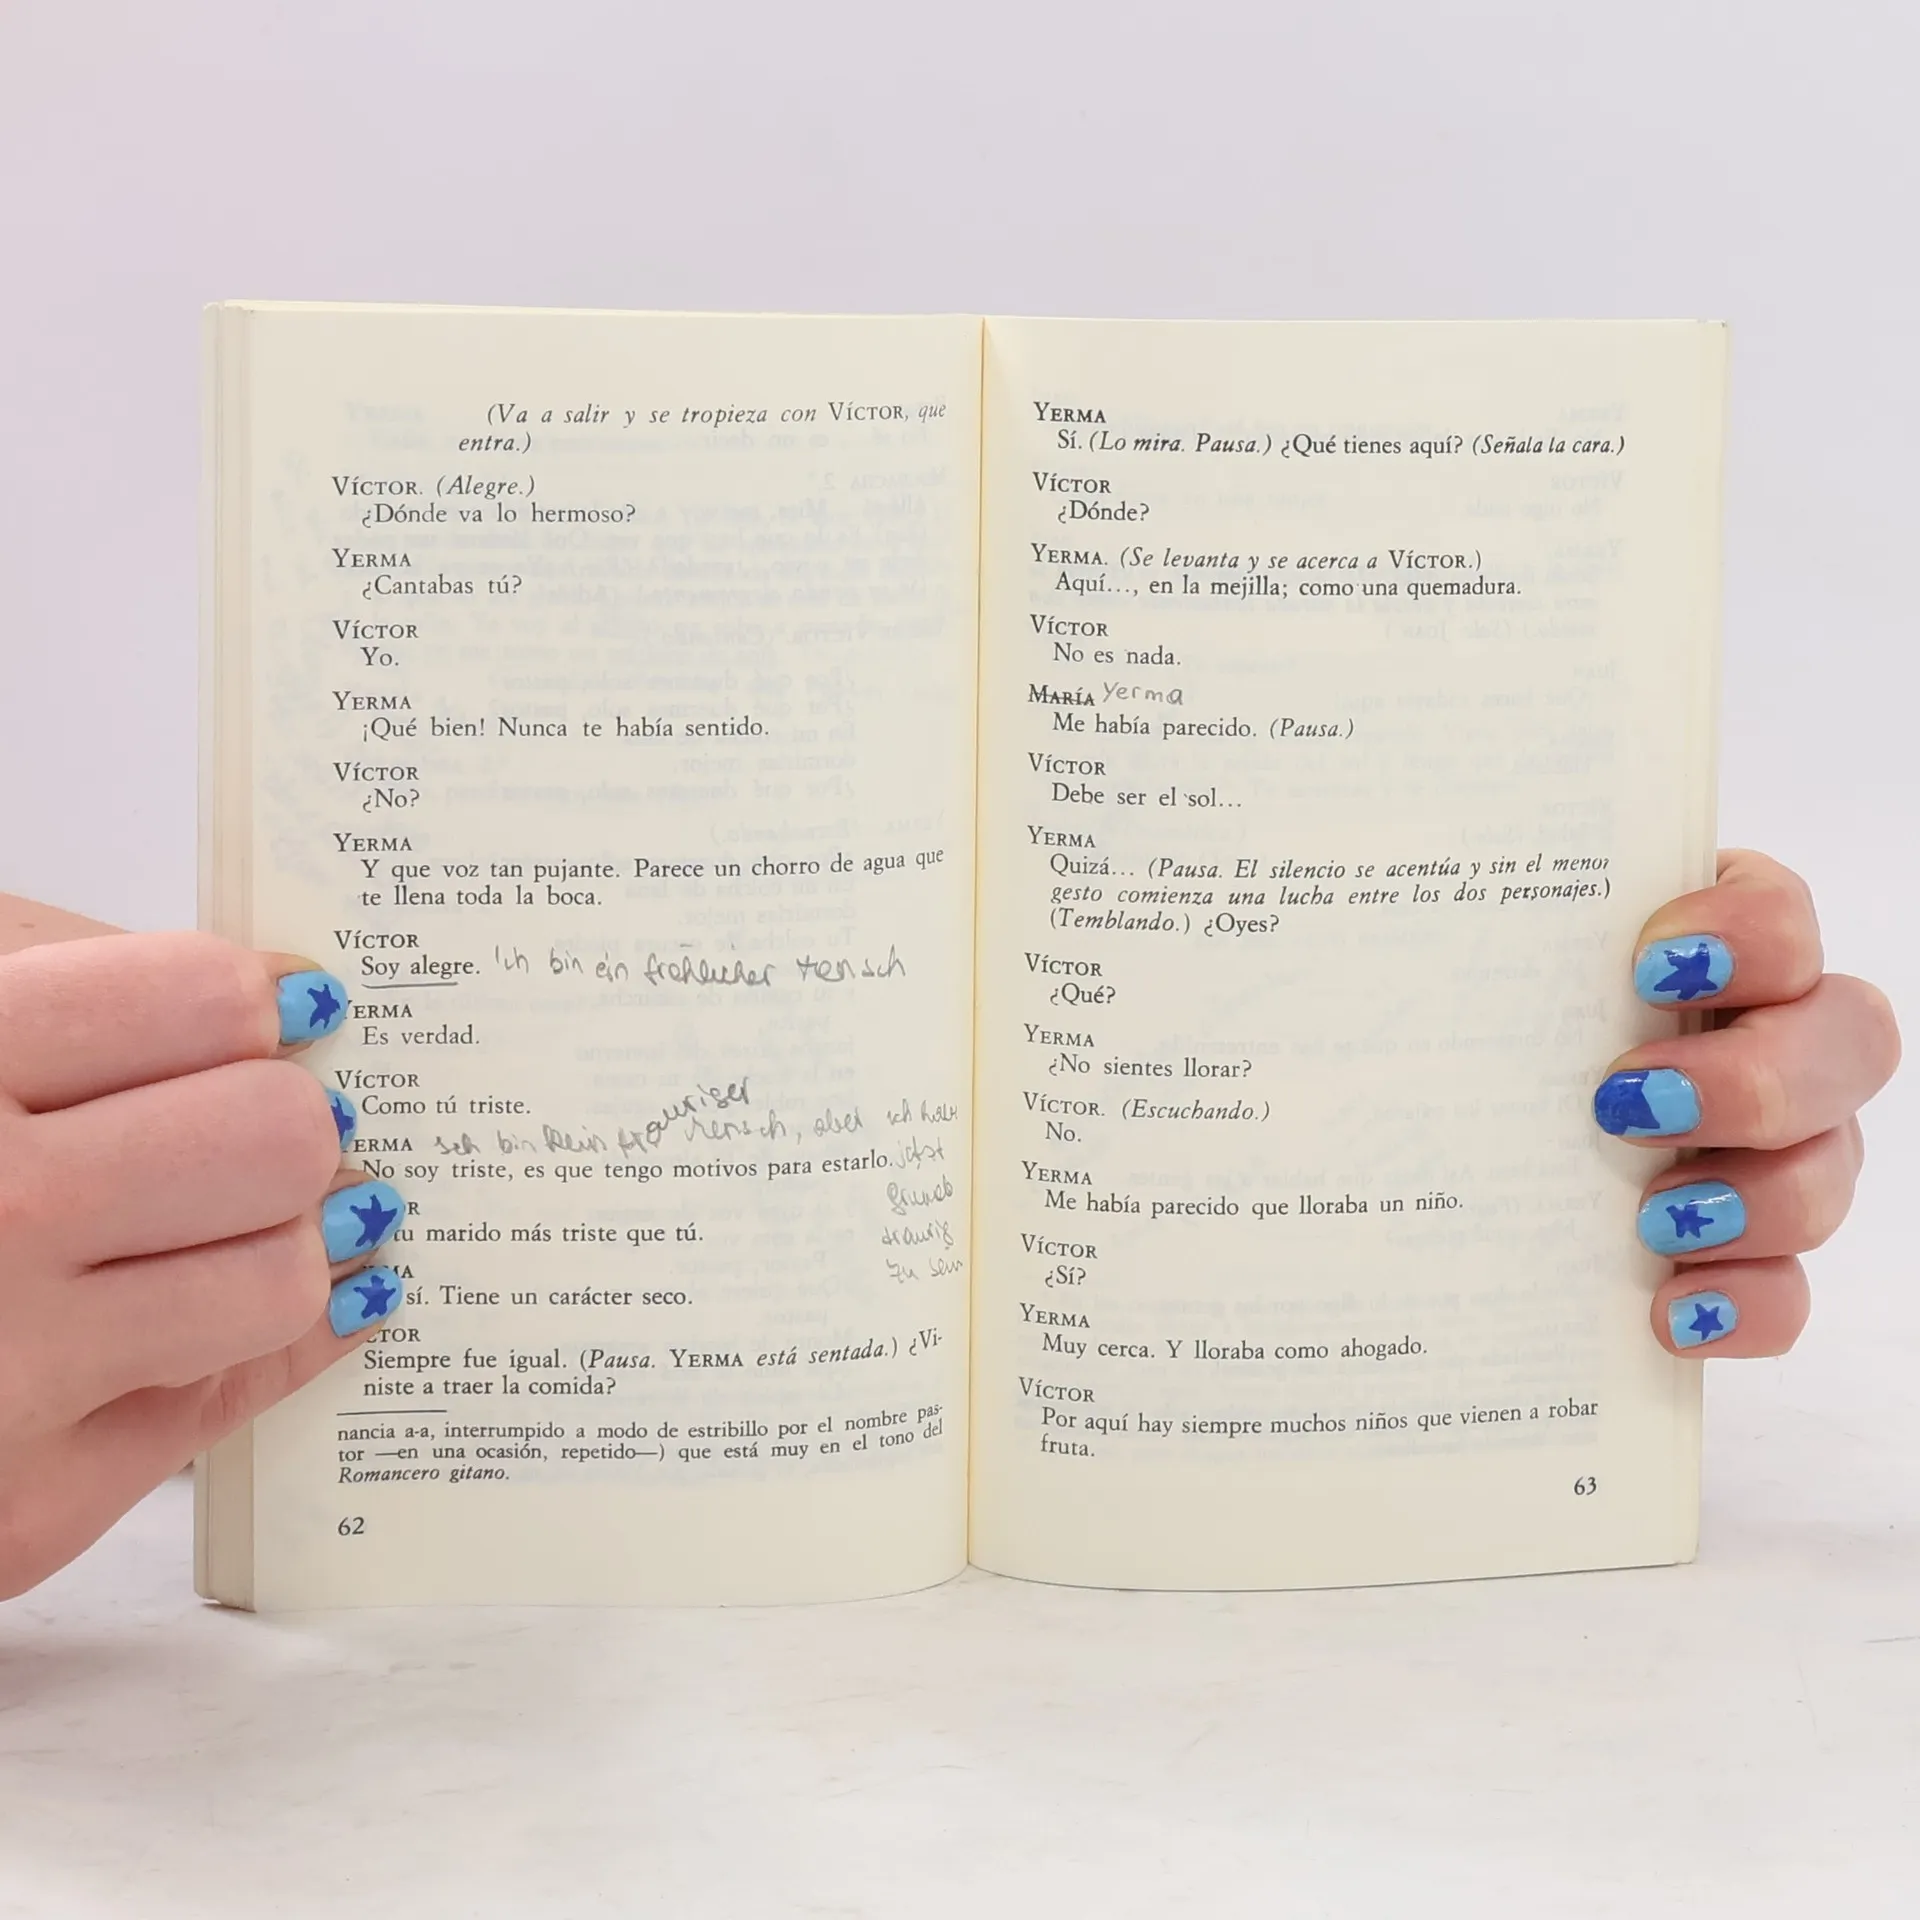 (Va a salir y se tropieza con VÍCTOR, que
entra.)
VÍCTOR. (Alegre.)
¿Dónde va lo hermoso?
YERMA
¿Cantabas tú?
VÍCTOR
Yo.
YERMA
¡Qué bien! Nunca te había sentido.
VÍCTOR
¿No?
YERMA
Y que voz tan pujante. Parece un chorro de agua que
te llena toda la boca.
VÍCTOR
Soy alegre. Ich bin ein fröhlicher Mensch
ERMA
Es verdad.
VÍCTOR
Como tú triste.
auriger
ERMA Ich bin kein Mensch, aber ich habe
No soy triste, es que tengo motivos para estarlo. jetzt
Grund
R
tu marido más triste que tú.
traurig
zu sein
MA
sí. Tiene un carácter seco.
CTOR
Siempre fue igual. (Pausa. YERMA está sentada.) ¿Vi-
niste a traer la comida?
nancia a-a, interrumpido a modo de estribillo por el nombre pas-
tor —en una ocasión, repetido—) que está muy en el tono del
Romancero gitano.
62
YERMA
Sí. (Lo mira. Pausa.) ¿Qué tienes aquí? (Señala la cara.)
VÍCTOR
¿Dónde?
YERMA. (Se levanta y se acerca a VÍCTOR.)
Aquí..., en la mejilla; como una quemadura.
VÍCTOR
No es nada.
MARÍA Yerma
Me había parecido. (Pausa.)
VÍCTOR
Debe ser el sol...
YERMA
Quizá... (Pausa. El silencio se acentúa y sin el menor
gesto comienza una lucha entre los dos personajes.)
(Temblando.) ¿Oyes?
VÍCTOR
¿Qué?
YERMA
¿No sientes llorar?
VÍCTOR. (Escuchando.)
No.
YERMA
Me había parecido que lloraba un niño.
VÍCTOR
¿Sí?
YERMA
Muy cerca. Y lloraba como ahogado.
VÍCTOR
Por aquí hay siempre muchos niños que vienen a robar
fruta.
63